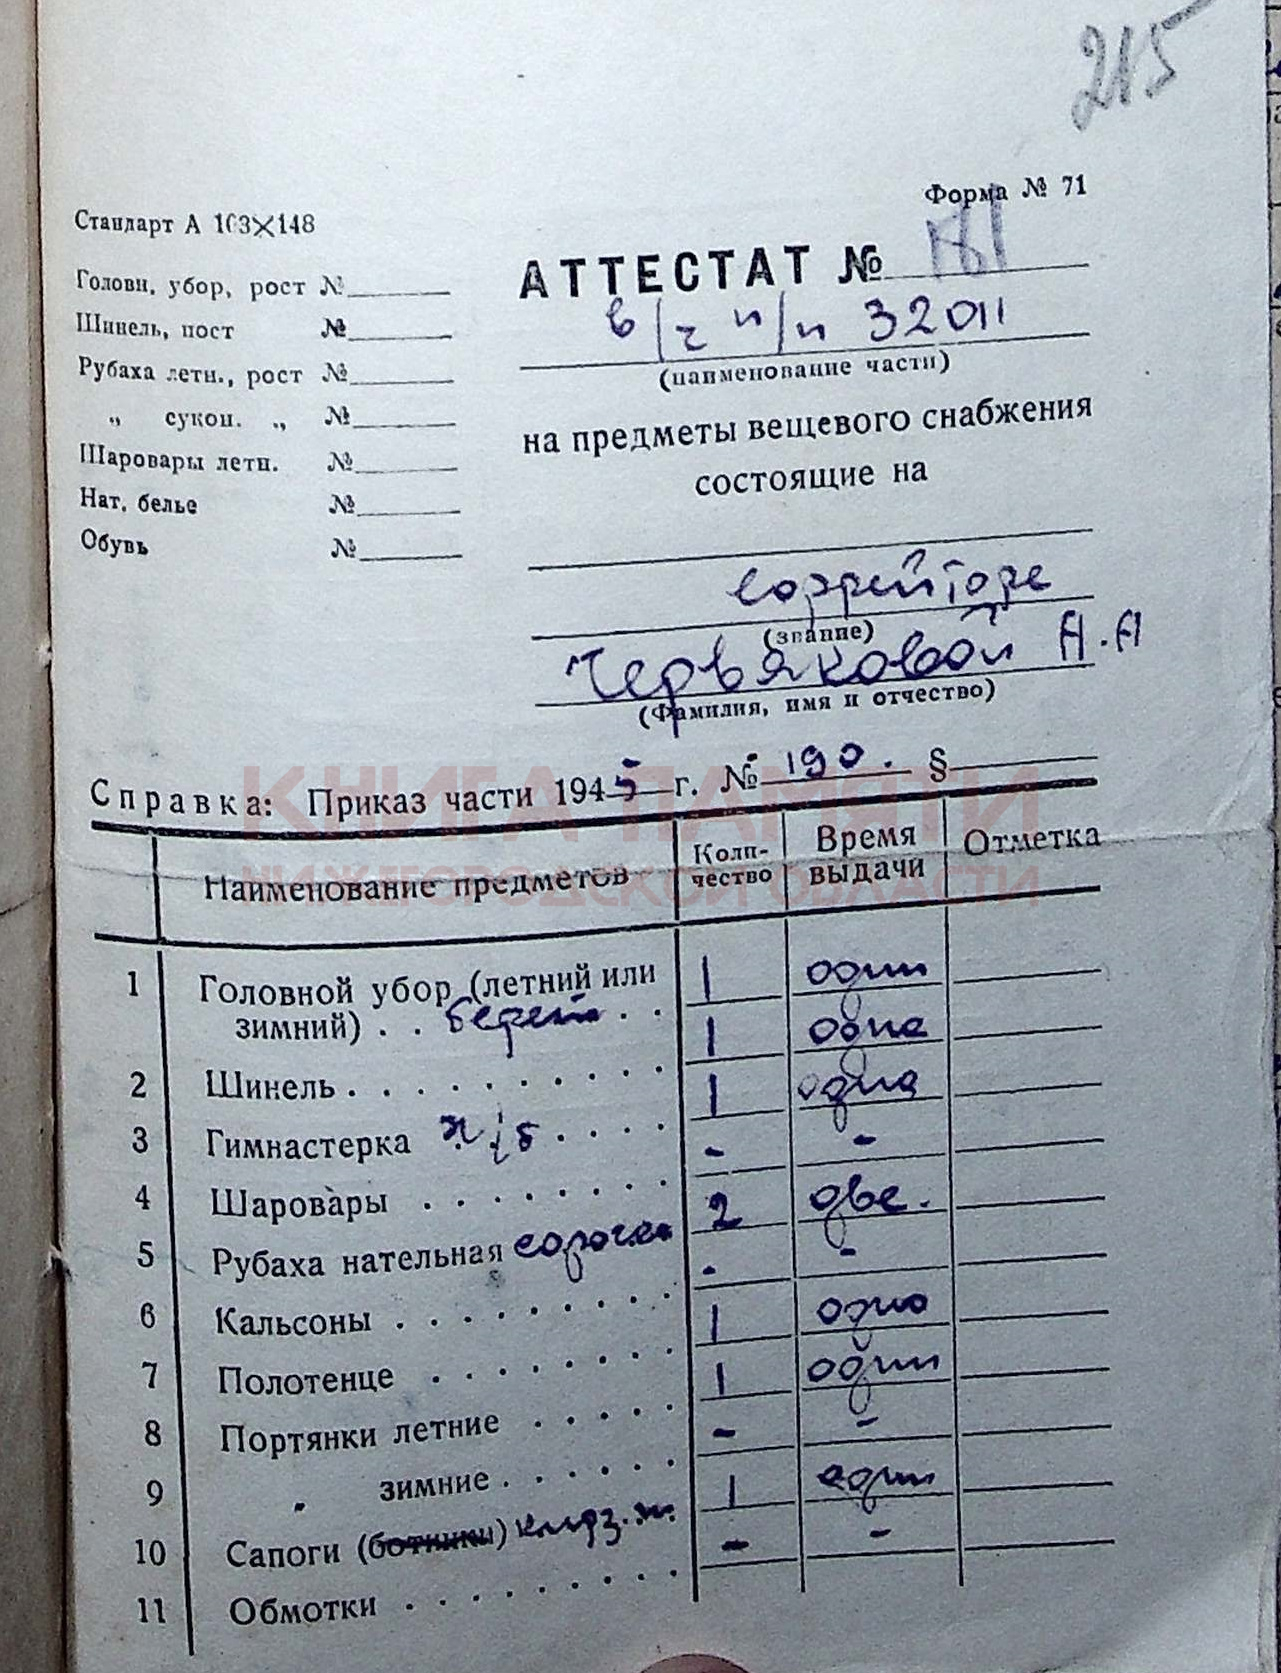 215
Форма № 71
Стандарт А 103×148
АТТЕСТАТ № 181
в/ч п/п 32011
(наименование части)
Головн. убор, рост №
Шинель, пост №
Рубаха летн., рост №
„ сукон. „ №
Шаровары летн. №
Нат. белье №
Обувь №
на предметы вещевого снабжения
состоящие на
(звание)
Червяковой А.А
(Фамилия, имя и отчество)
Справка: Приказ части 1945 г. № 190. §
КНИГА ПАМЯТИ
НИЖЕГОРОДСКОЙ ОБЛАСТИ
Наименование предметов Коли-чество Время выдачи Отметка
1 Головной убор (летний или 1 один
зимний) . . берет . . 1 одна
2 Шинель . . . . . . . . . . 1 одна
3 Гимнастерка х/б . . . . - -
4 Шаровары . . . . . . . . 2 две.
5 Рубаха нательная сорочка - -
6 Кальсоны . . . . . . . . . 1 одно
7 Полотенце . . . . . . . . 1 один
8 Портянки летние . . . . . - -
9 „ зимние . . . . . . 1 один
10 Сапоги (ботинки) - -
11 Обмотки . . . . . . . . .